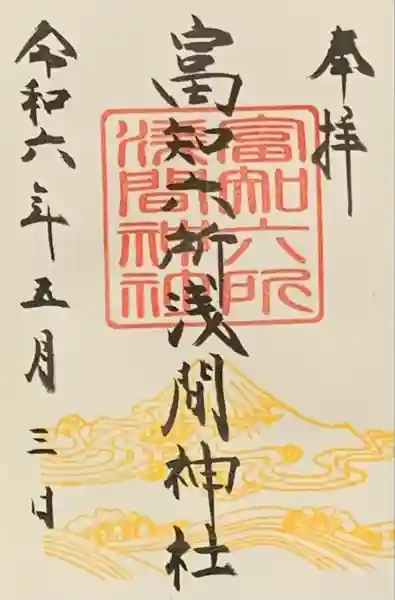 奉拝
富知六所浅間神社
富知六所
浅間神社
令和六年五月三日